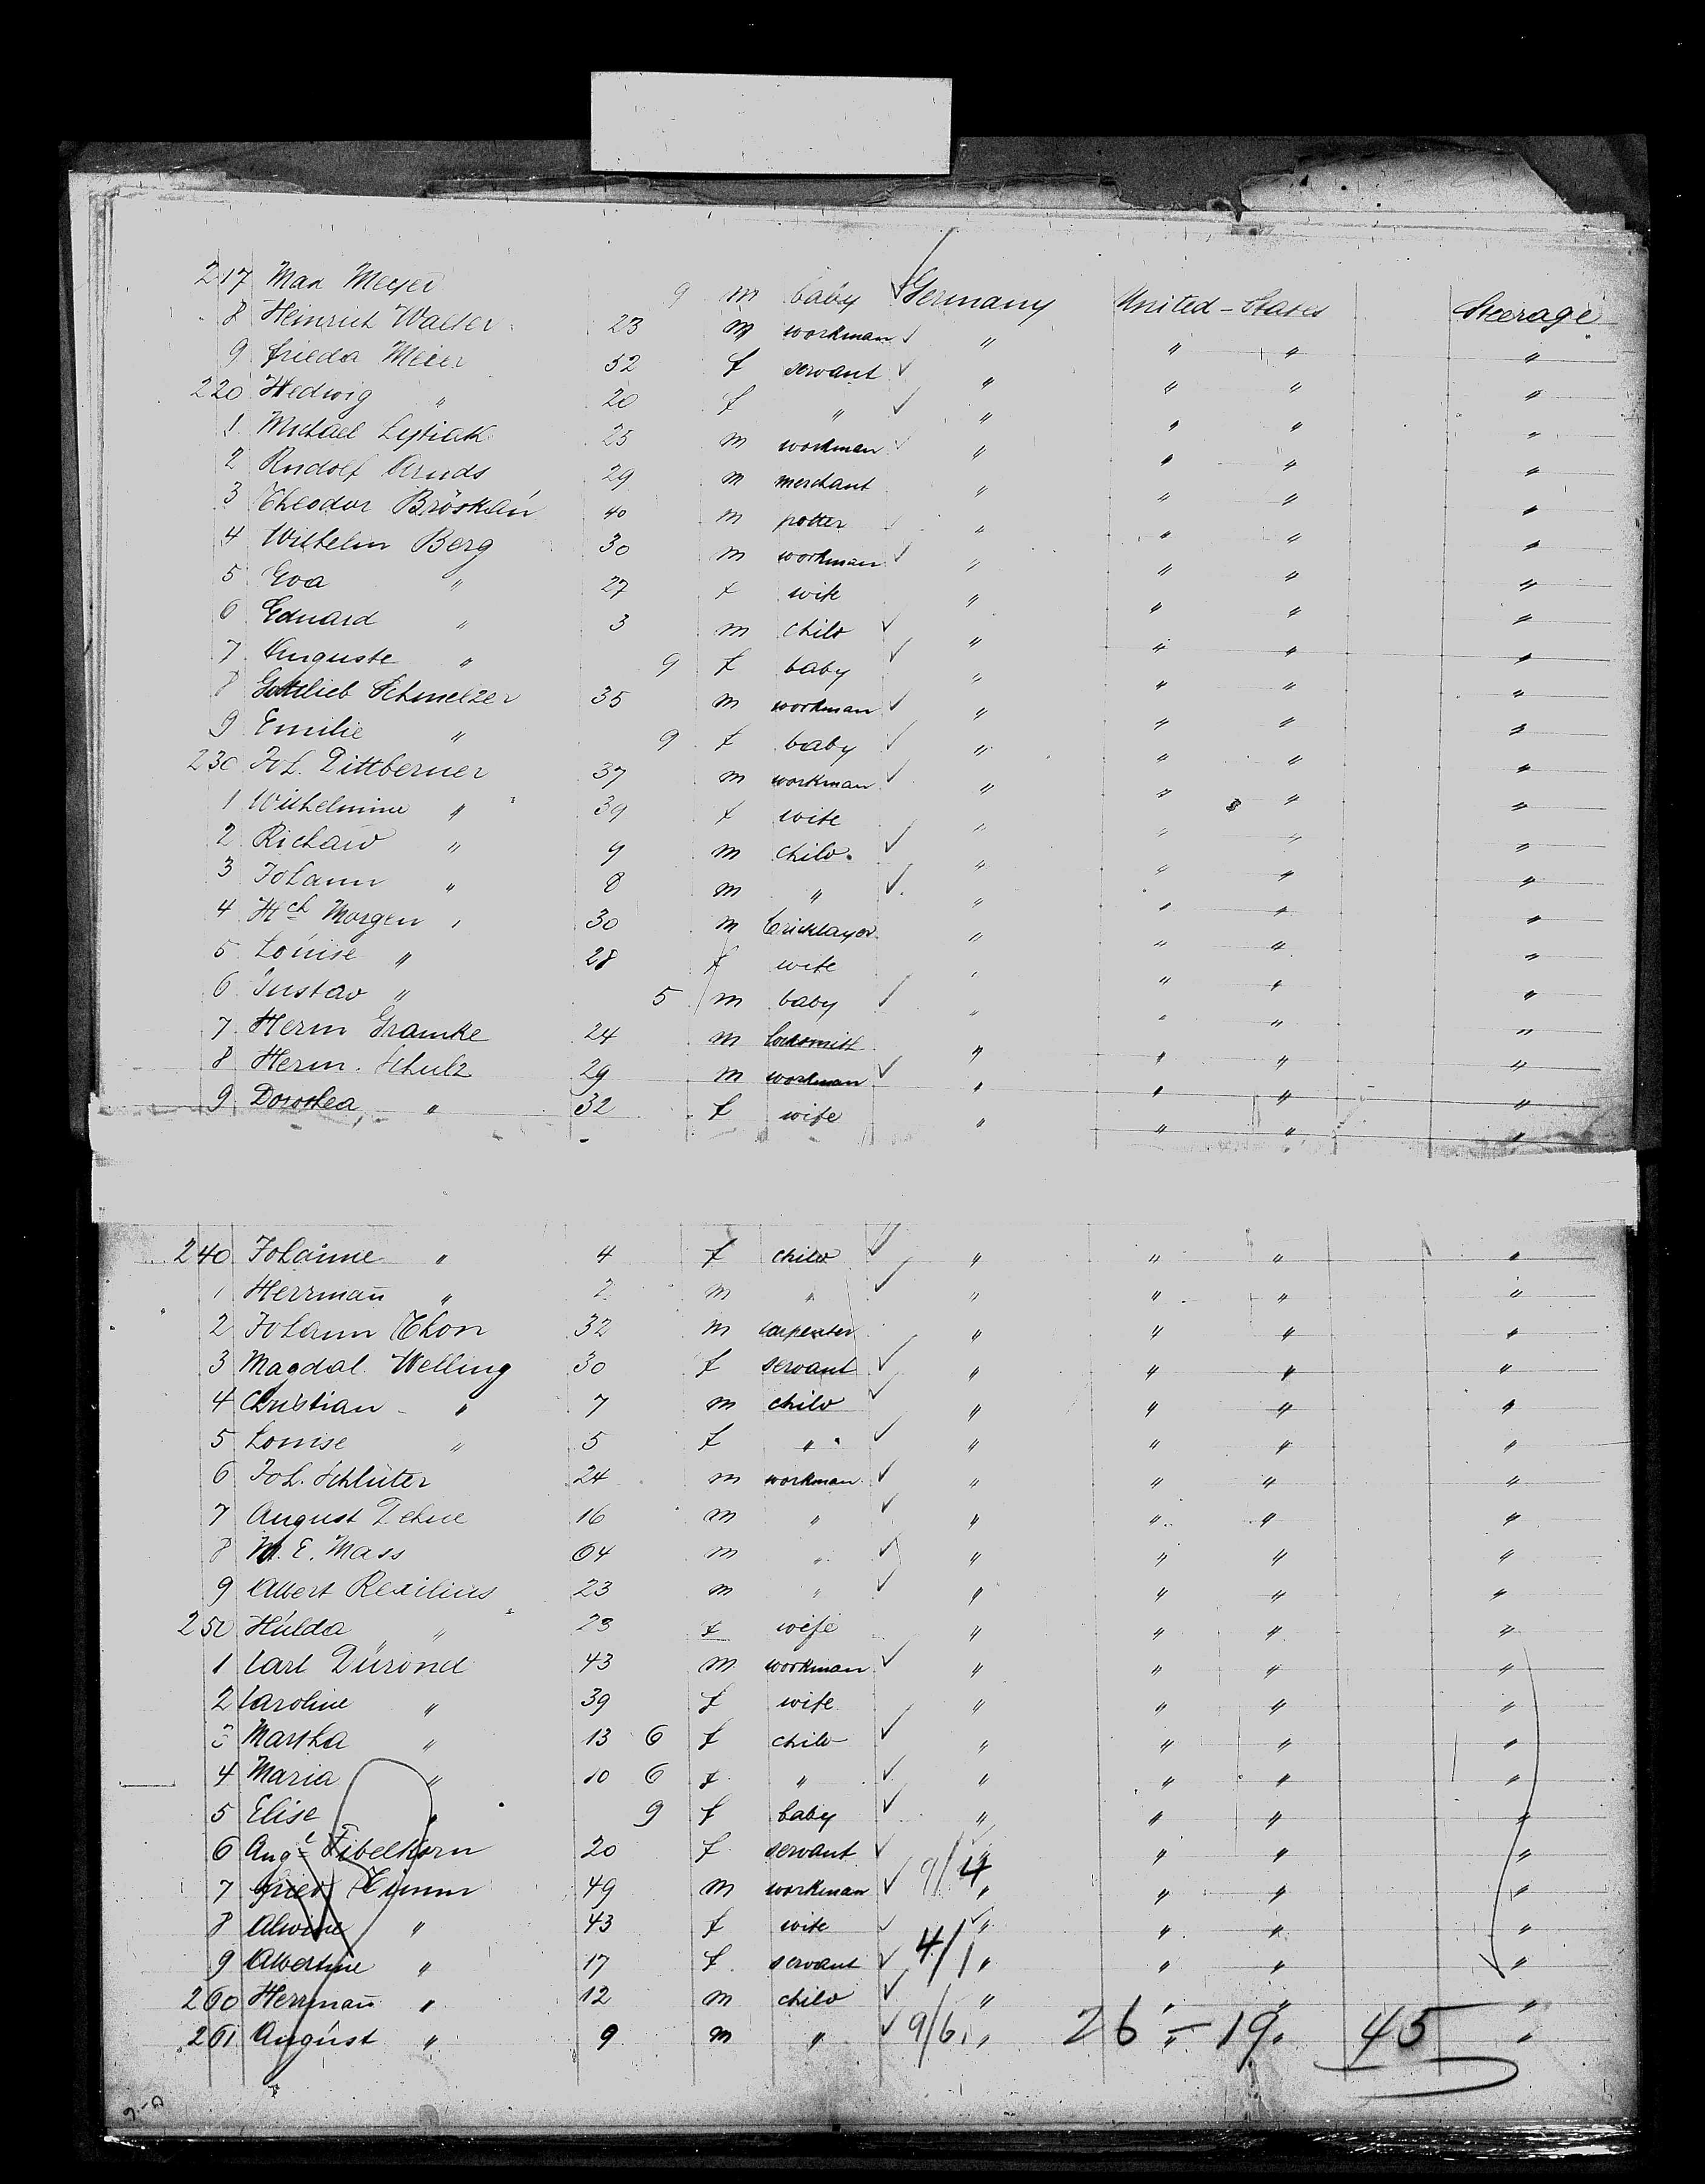 217 Max Meyer 9 m baby Germany United-States Steerage
8 Heinrich Walter 23 m workman " " " "
9 Frieda Meier 52 f servant " " " "
220 Hedwig " 20 f " " " " "
1 Michael 25 m workman " " " "
2 Rudolf Arnds 29 m merchant " " " "
3 Theodor 40 m potter " " " "
4 Wilhelm Berg 30 m workman " " " "
5 Eva " 27 f wife " " " "
6 Eduard " 3 m child " " " "
7 Auguste " 9 f baby " " " "
8 Gottlieb Schmelzer 35 m workman " " " "
9 Emilie " 9 f baby " " " "
230 Joh. Dittberner 37 m workman " " " "
1 Wilhelmine " 39 f wife " " " "
2 Richard " 9 m child " " " "
3 Johann " 8 m " " " " "
4 Hch Morgen 30 m bricklayer " " " "
5 Louise " 28 f wife " " " "
6 Gustav " 5 m baby " " " "
7 Herm Gramke 24 m locksmith " " " "
8 Herm. Schulz 29 m workman " " " "
9 Dorothea " 32 f wife " " " "
240 Johanne " 4 f child " " " "
1 Herrmañ " 2 m " " " " "
2 Johann Thon 32 m carpenter " " " "
3 Magdal. Welling 30 f servant " " " "
4 Christian " 7 m child " " " "
5 Louise " 5 f " " " " "
6 Joh. Schlüter 24 m workman " " " "
7 August Dehne 16 m " " " " "
8 M. E. Mass 64 m " " " " "
9 Albert Rexilius 23 m " " " " "
250 Hulda " 23 f wife " " " "
1 Carl Dürond 43 m workman " " " "
2 Caroline " 39 f wife " " " "
3 Martha " 13 6 f child " " " "
4 Maria " 10 6 f " " " " "
5 Elise " 9 f baby " " " "
6 Auge Fibelkorn 20 f servant " " " "
7 Fried 49 m workman 9/4 " " " "
8 Alwine " 43 f wife " " " "
9 Albertine " 17 f servant 4/1 " " " "
260 Herrmañ " 12 m child " " " "
261 August " 9 m " 9/6 " 26 " - 19 " 45 "